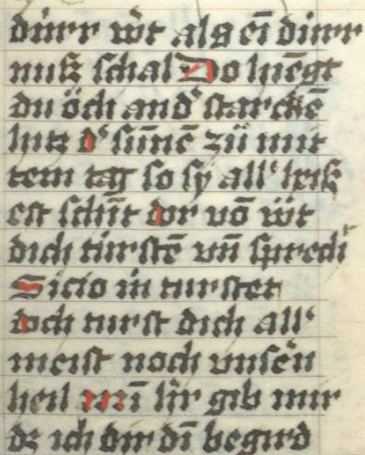 dürr wͤt als eī dürr
nusz schal Do hiēgt
du och and' starckē
hitz d' sunē zü mit
tem tag so sy all' heisz
est schīt dor vō wt
dich türstē vn̄ sprech
Sicio in turstet
doch turst dich all'
meist noch vnsern
heil mī h'r gib mir
dz ich dir dī begird